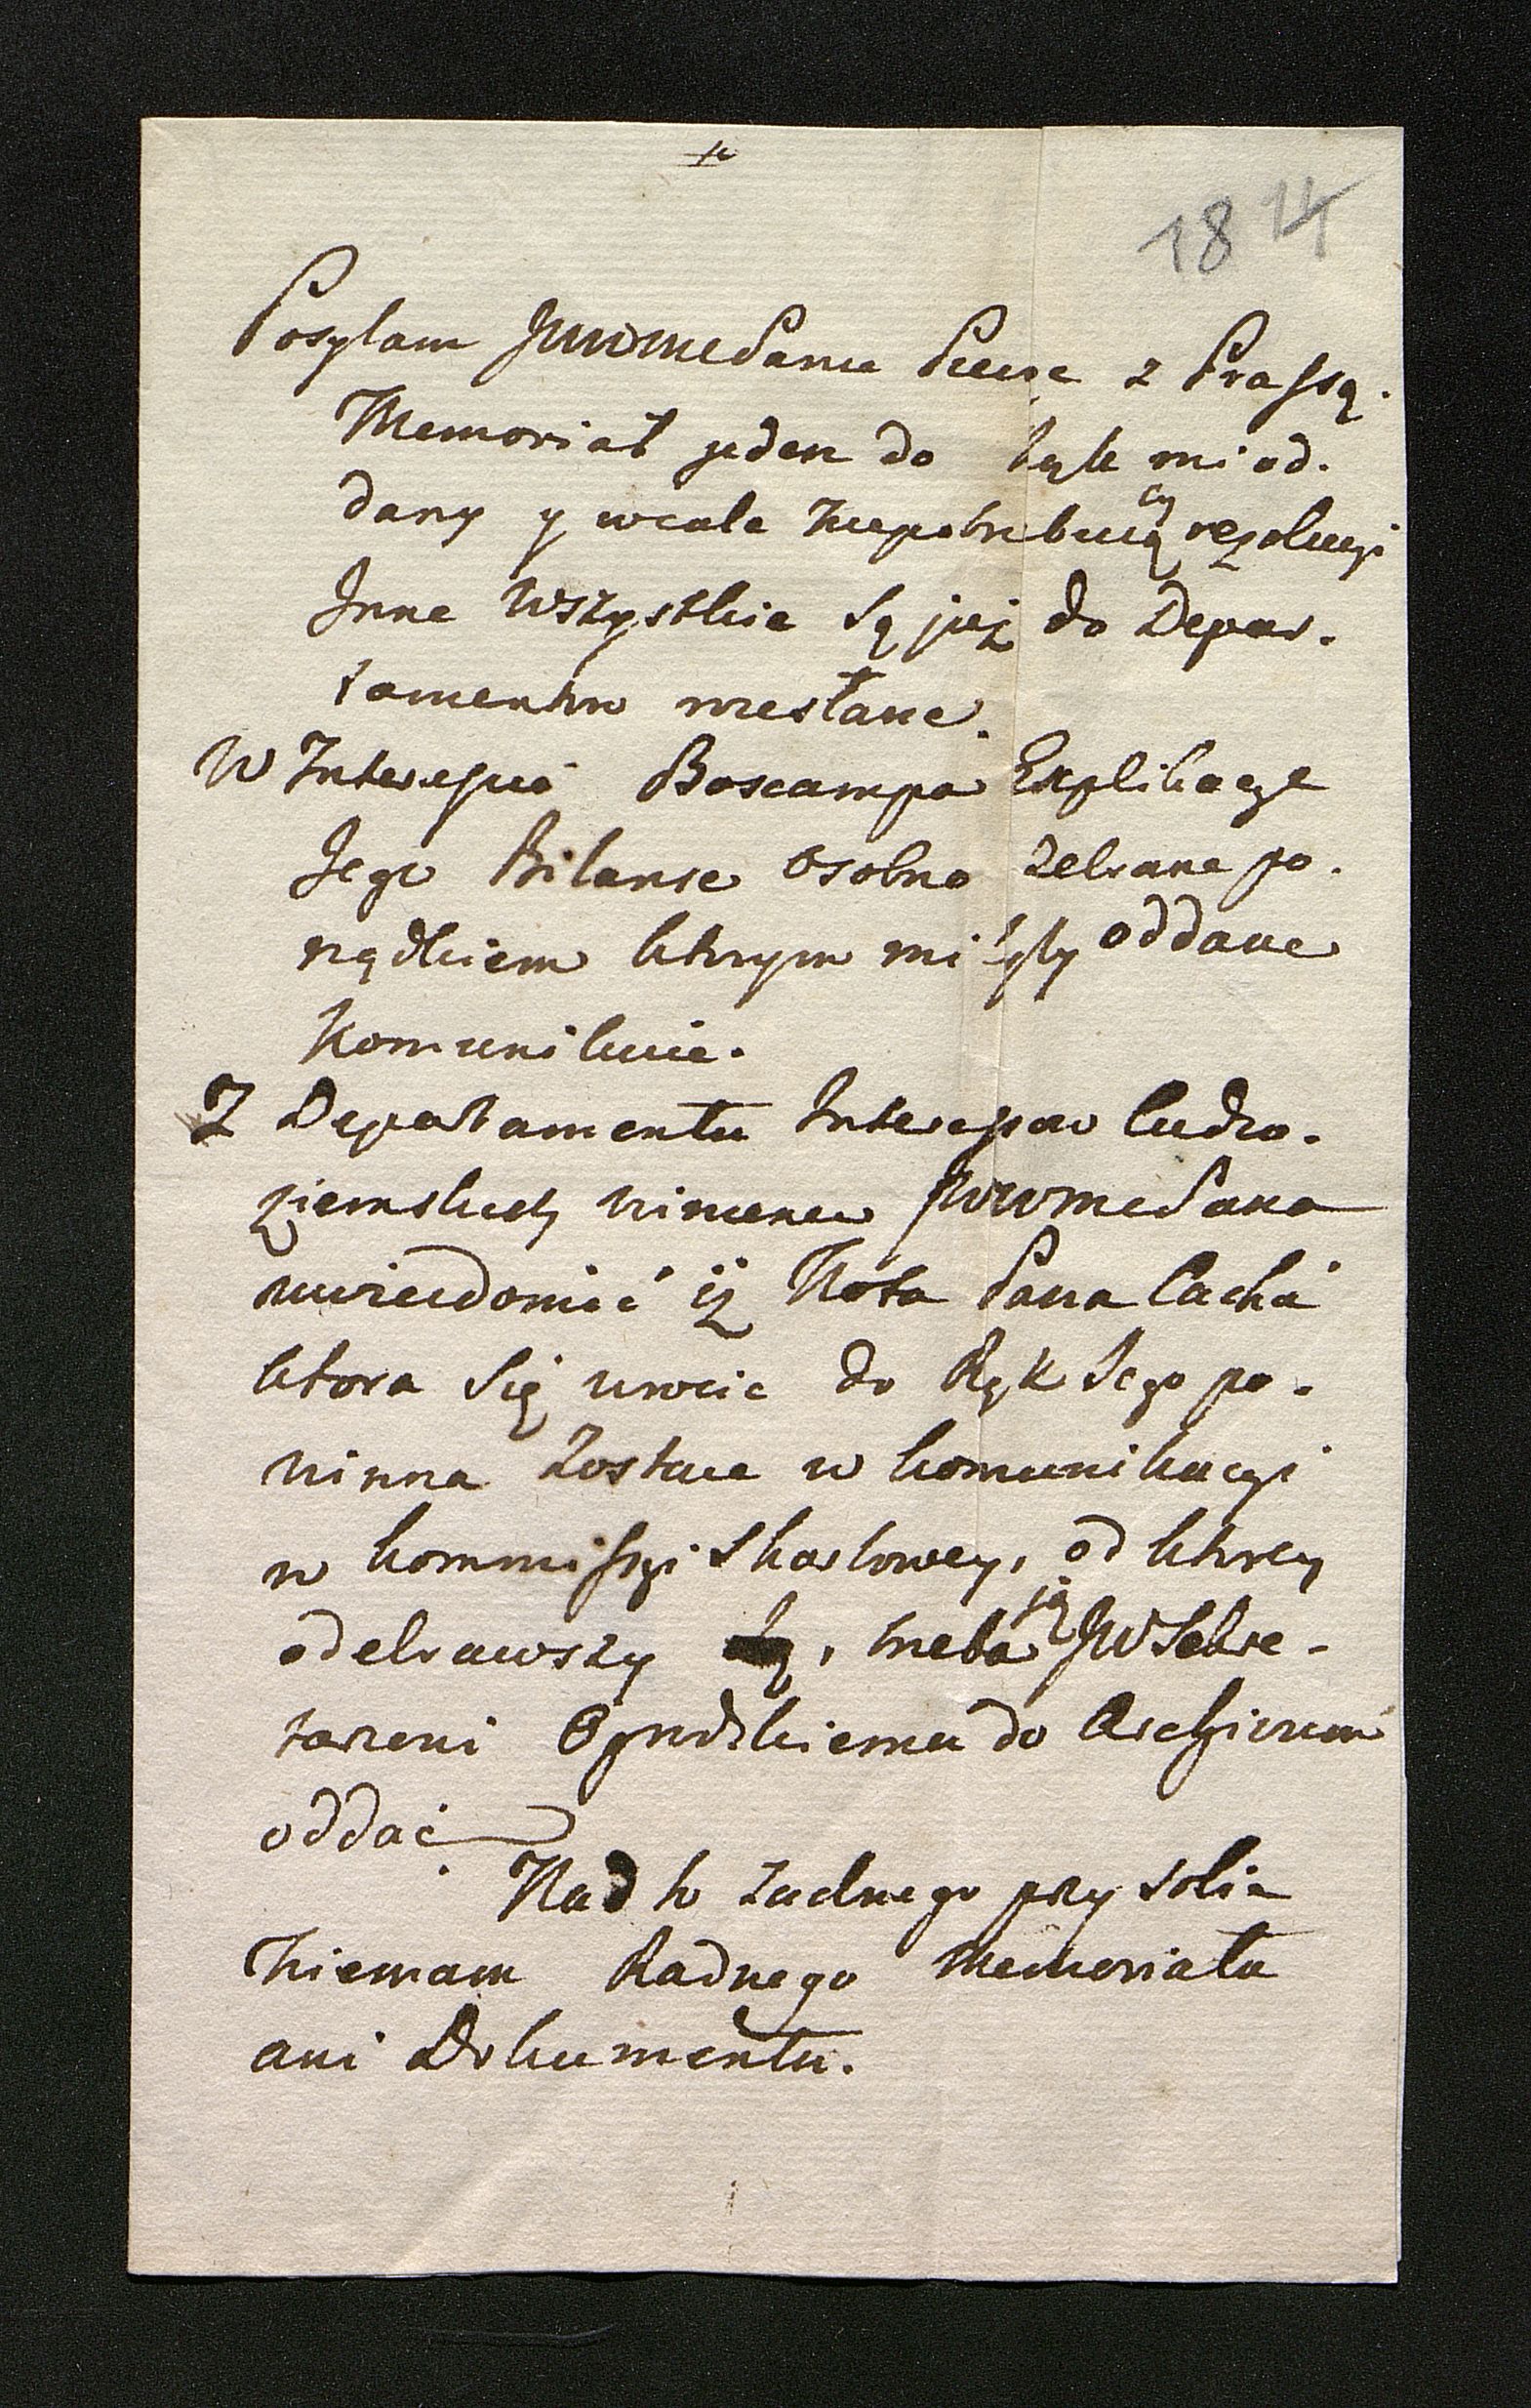 18 14
Posyłam JWWMCPanu z Prassą.
Memoriał jeden do tąd mi od-
dany y wcale niepotrzebuiący rezolucyi
Inne wszystkie są już do Depar-
tamentow wniesłane.
W Interessie Boscampa Explikacye
Jego Bilanse osobno zebrane po-
rządkiem ktorym mi były oddane
Komunikuie.
Z Departamentu Interessow Cudzo-
ziemskich winienem JWWMCPana
uwiadomić iż Nota Pana Caché
ktora się wroci do Rąk Jego po-
winna zostaie w kommunikacyi
w Kommissyi Skarbowey, od ktorey
odebrawszy, trzeba ją JW Sekre-
tarzowi Ogrodzkiemu do Archivum
oddać
Nad to żadnego przy sobie
niemam żadnego memoriału
ani Dokumentu.